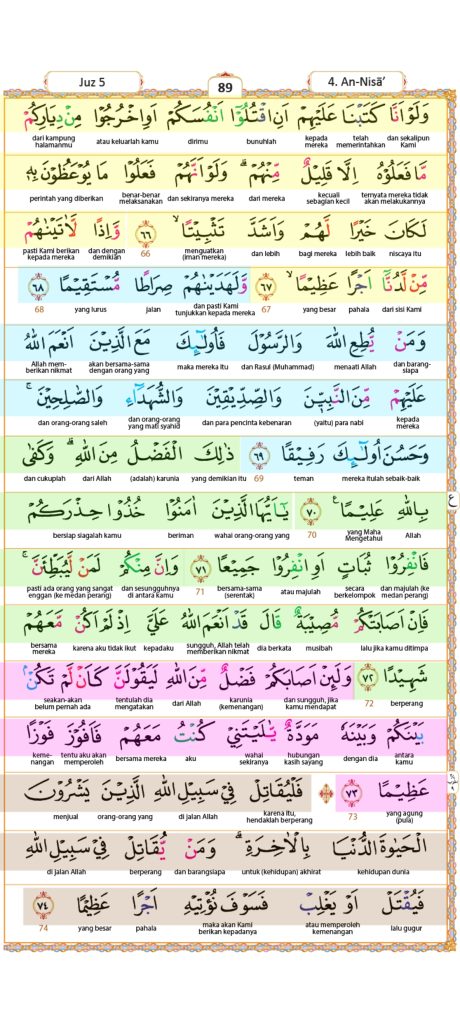 Juz 5
89
4. An-Nisā’
وَلَوْ اَنَّا كَتَبْنَا عَلَيْهِمْ اَنِ اقْتُلُوْٓا اَنْفُسَكُمْ اَوِ اخْرُجُوْا مِنْ دِيَارِكُمْ
dan sekalipun Kami telah memerintahkan kepada mereka bunuhlah dirimu atau keluarlah kamu dari kampung halamanmu
مَّا فَعَلُوْهُ اِلَّا قَلِيْلٌ مِّنْهُمْ ۗ وَلَوْ اَنَّهُمْ فَعَلُوْا مَا يُوْعَظُوْنَ بِهٖ
ternyata mereka tidak akan melakukannya kecuali sebagian kecil dari mereka dan sekiranya mereka benar-benar melaksanakan perintah yang diberikan
لَكَانَ خَيْرًا لَّهُمْ وَاَشَدَّ تَثْبِيْتًاۙ ٦٦ وَّاِذًا لَّاٰتَيْنٰهُمْ
niscaya itu lebih baik bagi mereka dan lebih menguatkan (iman mereka) 66 dan dengan demikian pasti Kami berikan kepada mereka
مِّنْ لَّدُنَّآ اَجْرًا عَظِيْمًاۙ ٦٧ وَّلَهَدَيْنٰهُمْ صِرَاطًا مُّسْتَقِيْمًا ٦٨
dari sisi Kami pahala yang besar 67 dan pasti Kami tunjukkan kepada mereka jalan yang lurus 68
وَمَنْ يُّطِعِ اللّٰهَ وَالرَّسُوْلَ فَاُولٰۤىِٕكَ مَعَ الَّذِيْنَ اَنْعَمَ اللّٰهُ
dan barang-siapa menaati Allah dan Rasul (Muhammad) maka mereka itu akan bersama-sama dengan orang yang Allah mem-berikan nikmat
عَلَيْهِمْ مِّنَ النَّبِيّٖنَ وَالصِّدِّيْقِيْنَ وَالشُّهَدَاۤءِ وَالصّٰلِحِيْنَ ۚ
kepada mereka (yaitu) para nabi dan para pencinta kebenaran dan orang-orang yang mati syahid dan orang-orang saleh
وَحَسُنَ اُولٰۤىِٕكَ رَفِيْقًا ٦٩ ذٰلِكَ الْفَضْلُ مِنَ اللّٰهِ ۗ وَكَفٰى
mereka itulah sebaik-baik teman 69 yang demikian itu (adalah) karunia dari Allah dan cukuplah
بِاللّٰهِ عَلِيْمًا ࣖ ٧٠ يٰٓاَيُّهَا الَّذِيْنَ اٰمَنُوْا خُذُوْا حِذْرَكُمْ
ع
Allah yang Maha Mengetahui 70 wahai orang-orang yang beriman bersiap siagalah kamu
فَانْفِرُوْا ثُبَاتٍ اَوِ انْفِرُوْا جَمِيْعًا ٧١ وَاِنَّ مِنْكُمْ لَمَنْ لَّيُبَطِّئَنَّۚ
dan majulah (ke medan perang) secara berkelompok atau majulah bersama-sama (serentak) 71 dan sesungguhnya di antara kamu pasti ada orang yang sangat enggan (ke medan perang)
فَاِنْ اَصَابَتْكُمْ مُّصِيْبَةٌ قَالَ قَدْ اَنْعَمَ اللّٰهُ عَلَيَّ اِذْ لَمْ اَكُنْ مَّعَهُمْ
lalu jika kamu ditimpa musibah dia berkata sungguh, Allah telah memberikan nikmat kepadaku karena aku tidak ikut bersama mereka
شَهِيْدًا ٧٢ وَلَىِٕنْ اَصَابَكُمْ فَضْلٌ مِّنَ اللّٰهِ لَيَقُوْلَنَّ كَاَنْ لَّمْ تَكُنْۢ
berperang 72 dan sungguh, jika kamu mendapat karunia (kemenangan) dari Allah tentulah dia mengatakan seakan-akan belum pernah ada
بَيْنَكُمْ وَبَيْنَهٗ مَوَدَّةٌ يّٰلَيْتَنِيْ كُنْتُ مَعَهُمْ فَاَفُوْزَ فَوْزًا
antara kamu dengan dia hubungan kasih sayang wahai sekiranya aku bersama mereka tentu aku akan memperoleh keme-nangan
عَظِيْمًا ٧٣ ۞ فَلْيُقَاتِلْ فِيْ سَبِيْلِ اللّٰهِ الَّذِيْنَ يَشْرُوْنَ
yang agung (pula) 73 karena itu, hendaklah berperang di jalan Allah orang-orang yang menjual
الْحَيٰوةَ الدُّنْيَا بِالْاٰخِرَةِ ۗ وَمَنْ يُّقَاتِلْ فِيْ سَبِيْلِ اللّٰهِ
kehidupan dunia untuk (kehidupan) akhirat dan barangsiapa berperang di jalan Allah
فَيُقْتَلْ اَوْ يَغْلِبْ فَسَوْفَ نُؤْتِيْهِ اَجْرًا عَظِيْمًا ٧٤
lalu gugur atau memperoleh kemenangan maka akan Kami berikan kepadanya pahala yang besar 74